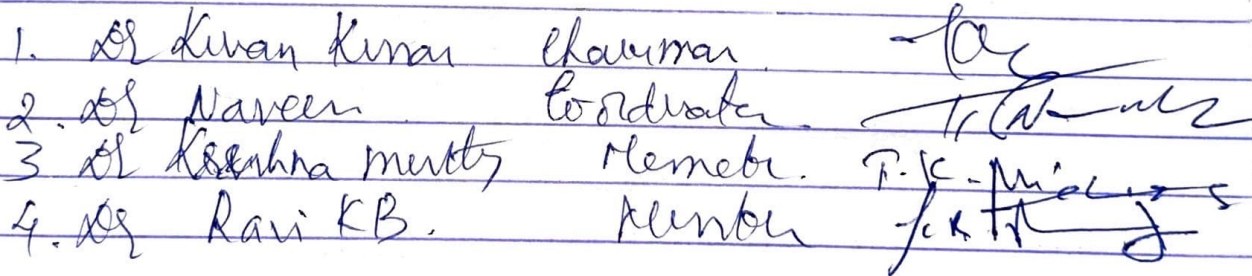 1. Dr Kiran Kumar Chairman
2. Dr Naveen Coordinator.
3 Dr Krishna murthy Member.
4. Dr Ravi KB. Member